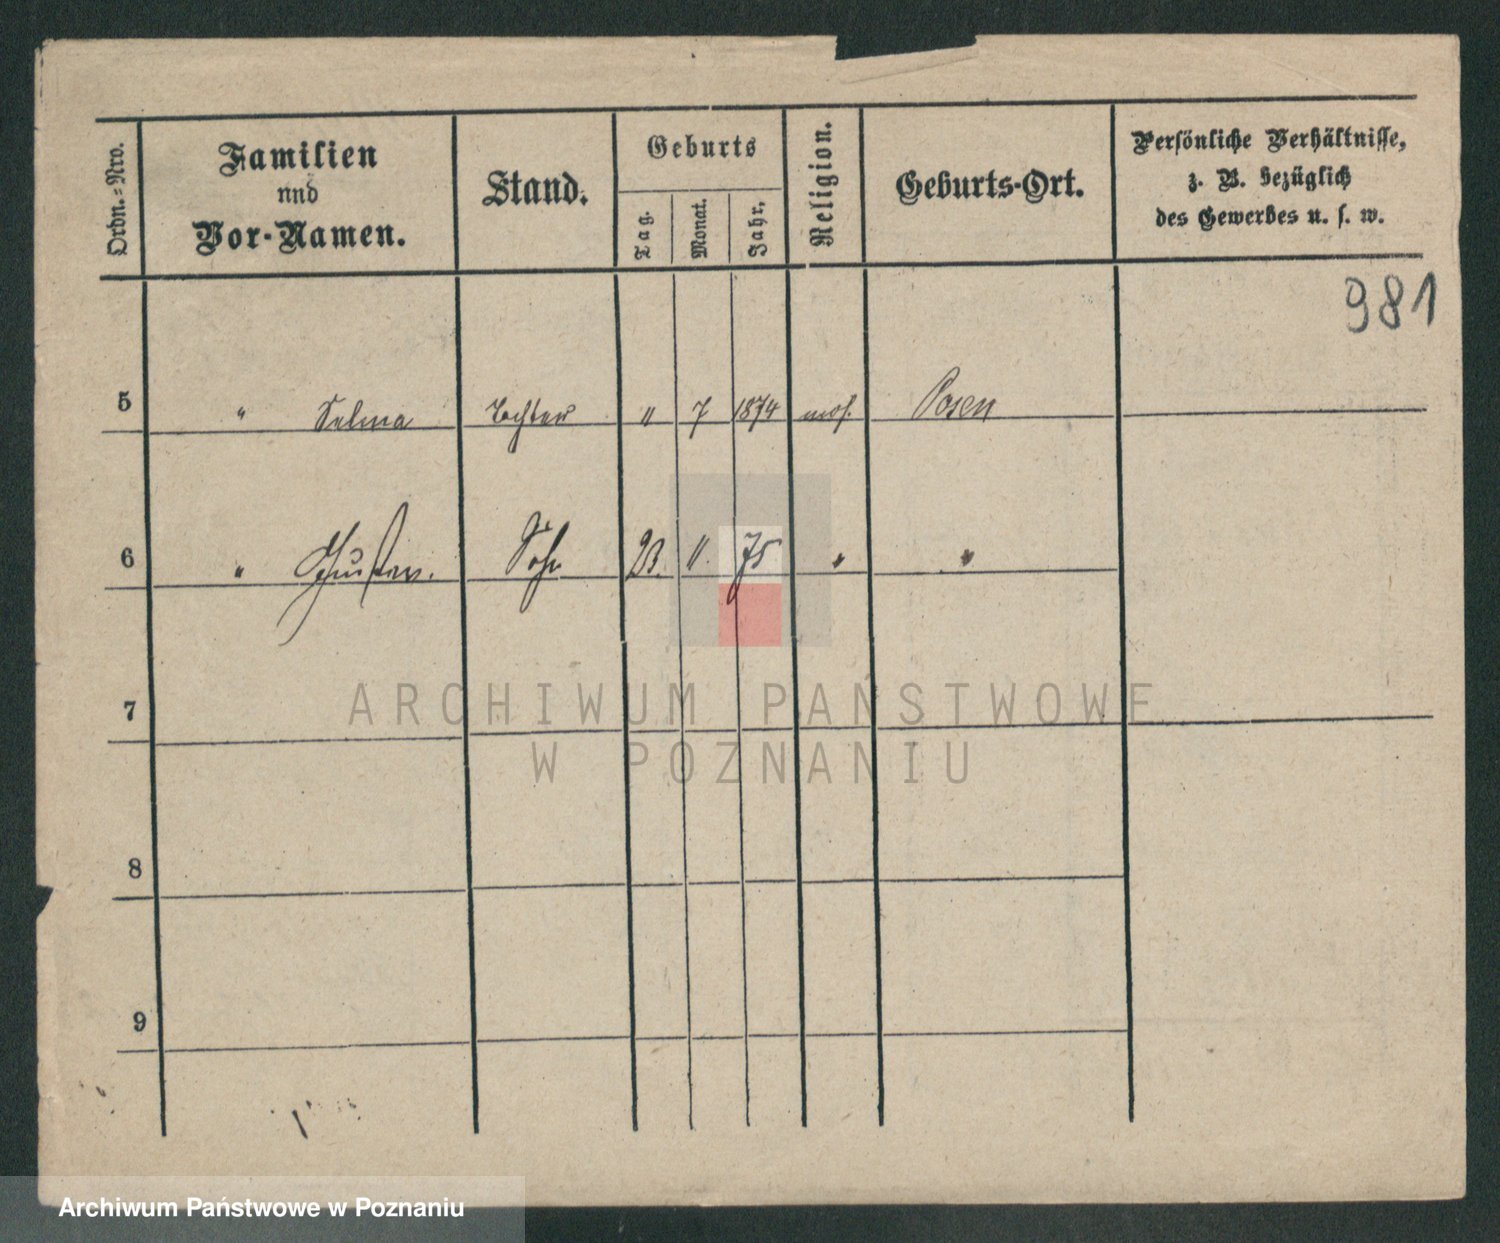 Ordn.-Nro.
Familien
und
Vor-Namen.
Stand.
Geburts
Tag.
Monat.
Jahr.
Religion.
Geburts-Ort.
Persönliche Verhältnisse,
z. B. bezüglich
des Gewerbes u. s. w.
981
5 " Selma Tochter " 7 1874 mos. Posen
6 " Gustav. Sohn 23. 11. 75 " "
7
8
9
ARCHIWUM PAŃSTWOWE
W POZNANIU
Archiwum Państwowe w Poznaniu